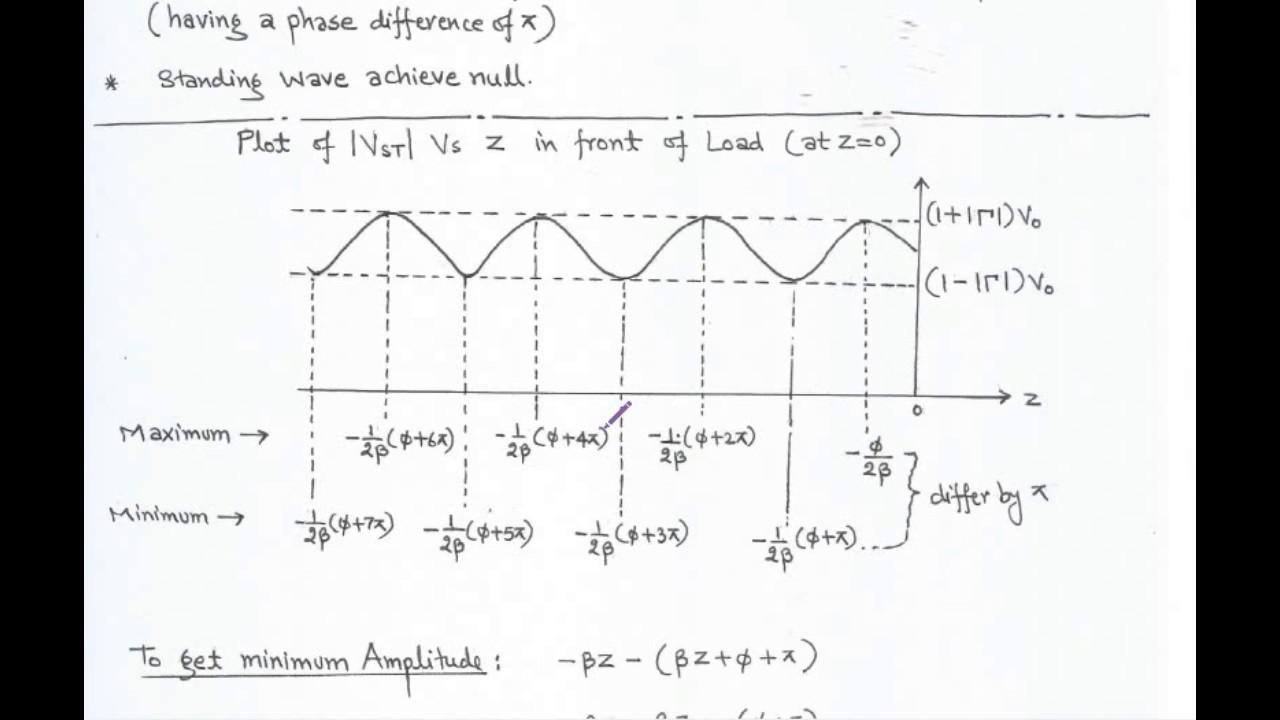 (having a phase difference of π)
* Standing Wave achieve null.
Plot of |VST| Vs Z in front of Load (at Z=0)
(1+|Γ|)V₀
(1-|Γ|)V₀
Z
0
Maximum → -1/2β(φ+6π) -1/2β(φ+4π) -1/2β(φ+2π) -φ/2β
differ by π
Minimum → -1/2β(φ+7π) -1/2β(φ+5π) -1/2β(φ+3π) -1/2β(φ+π)...
To get minimum Amplitude: -βZ - (βZ+φ+π)